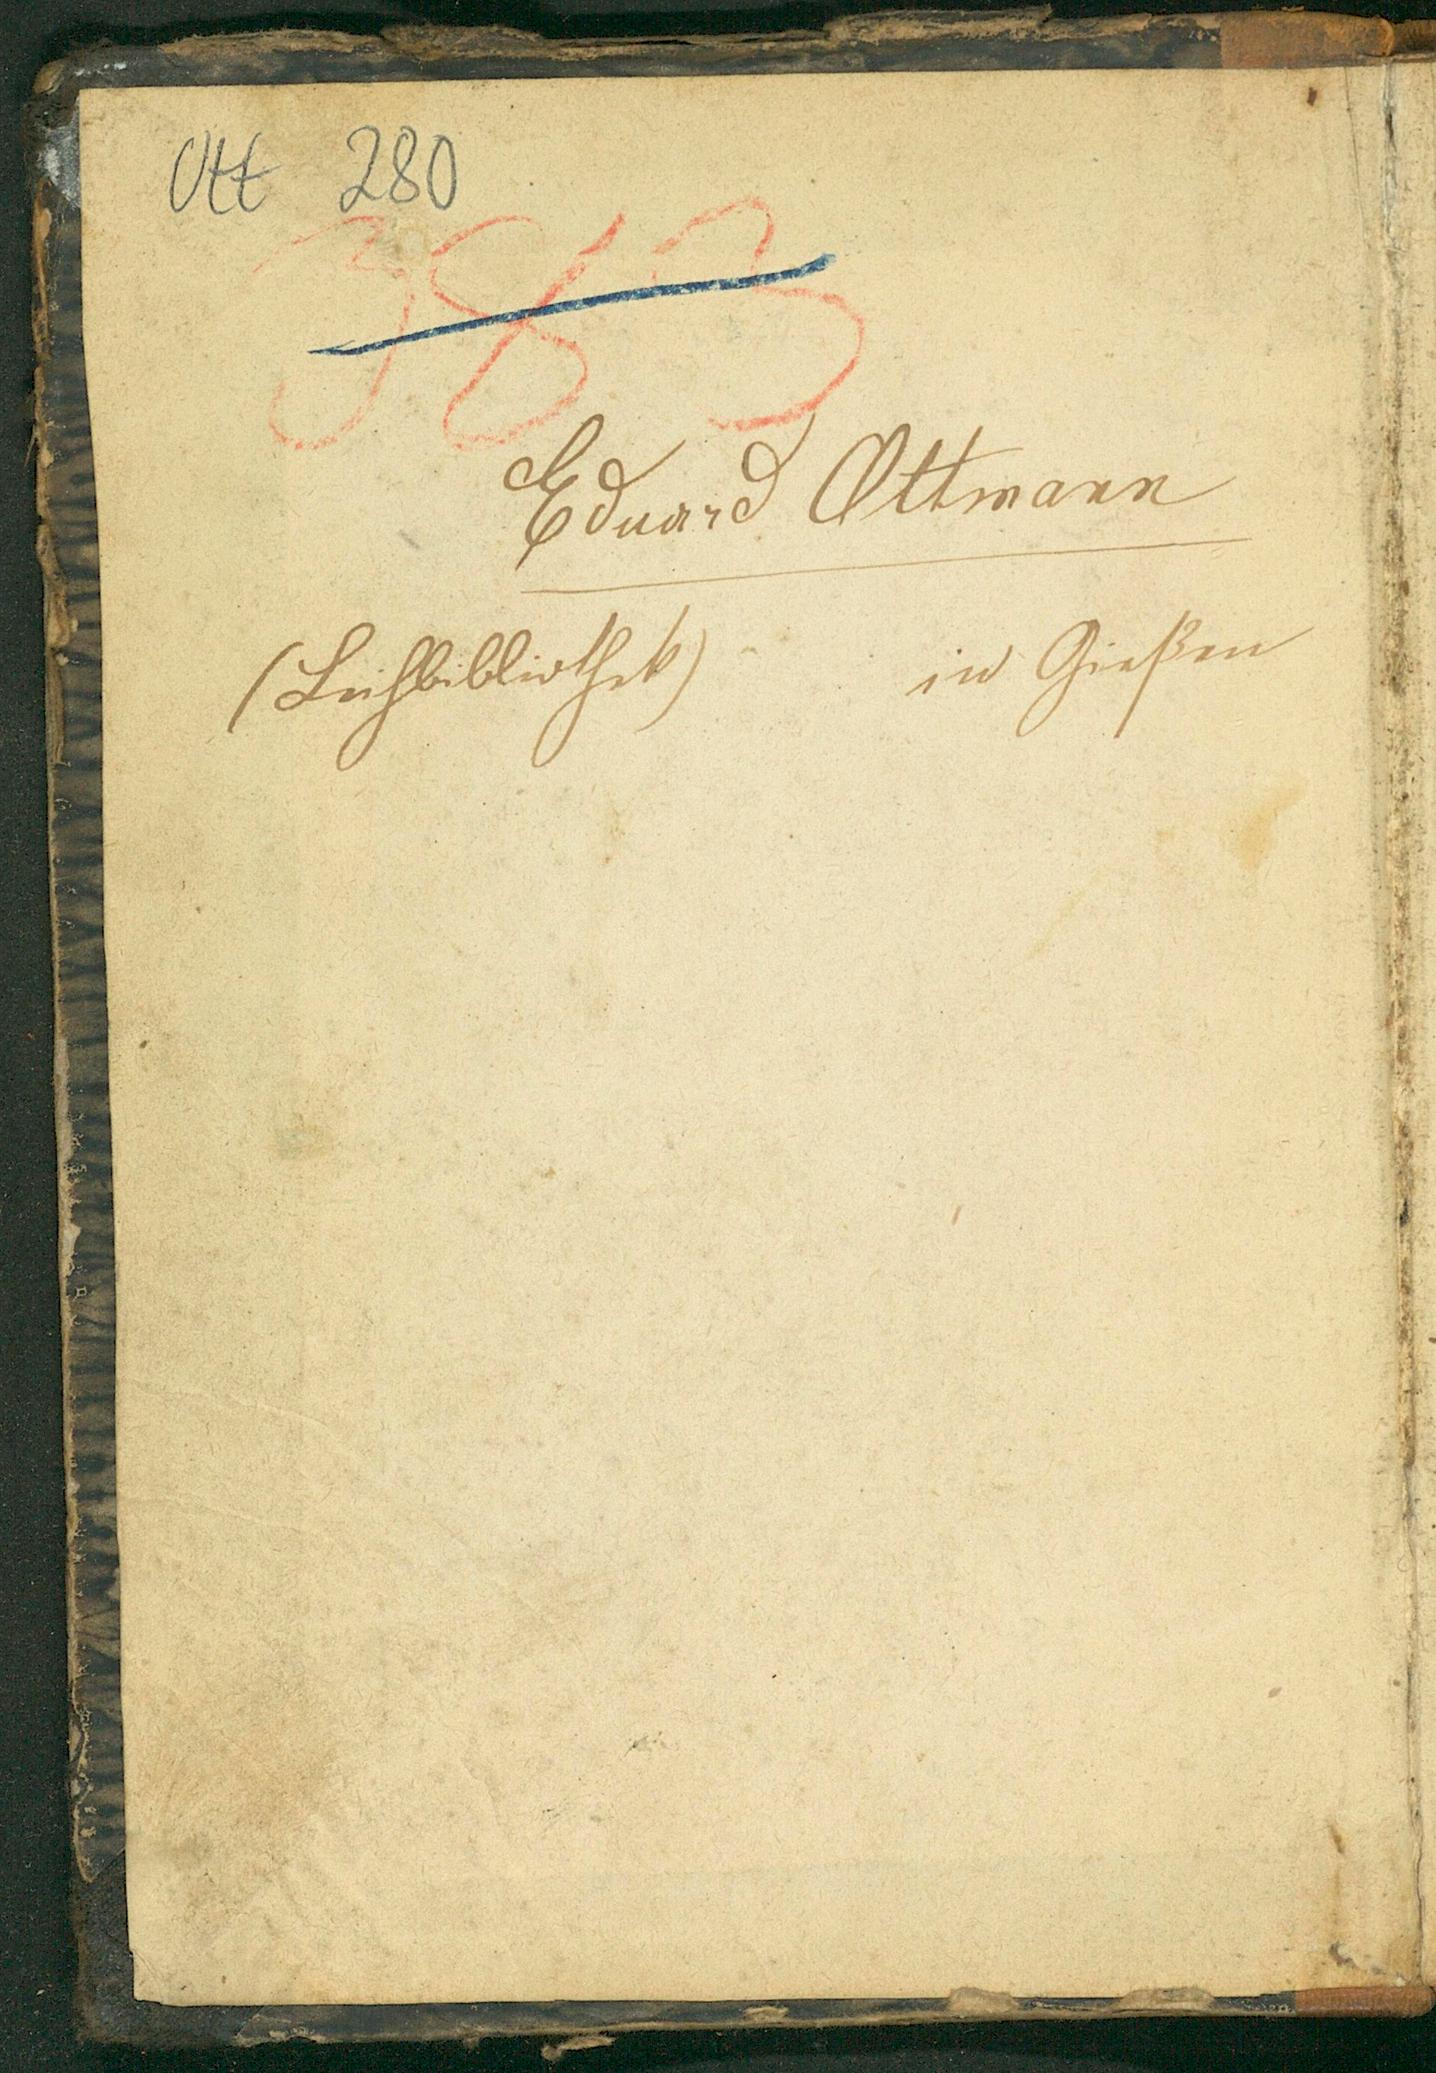 Ott 280
383
Eduard Ottmann
(Leihbibliothek) in Gießen